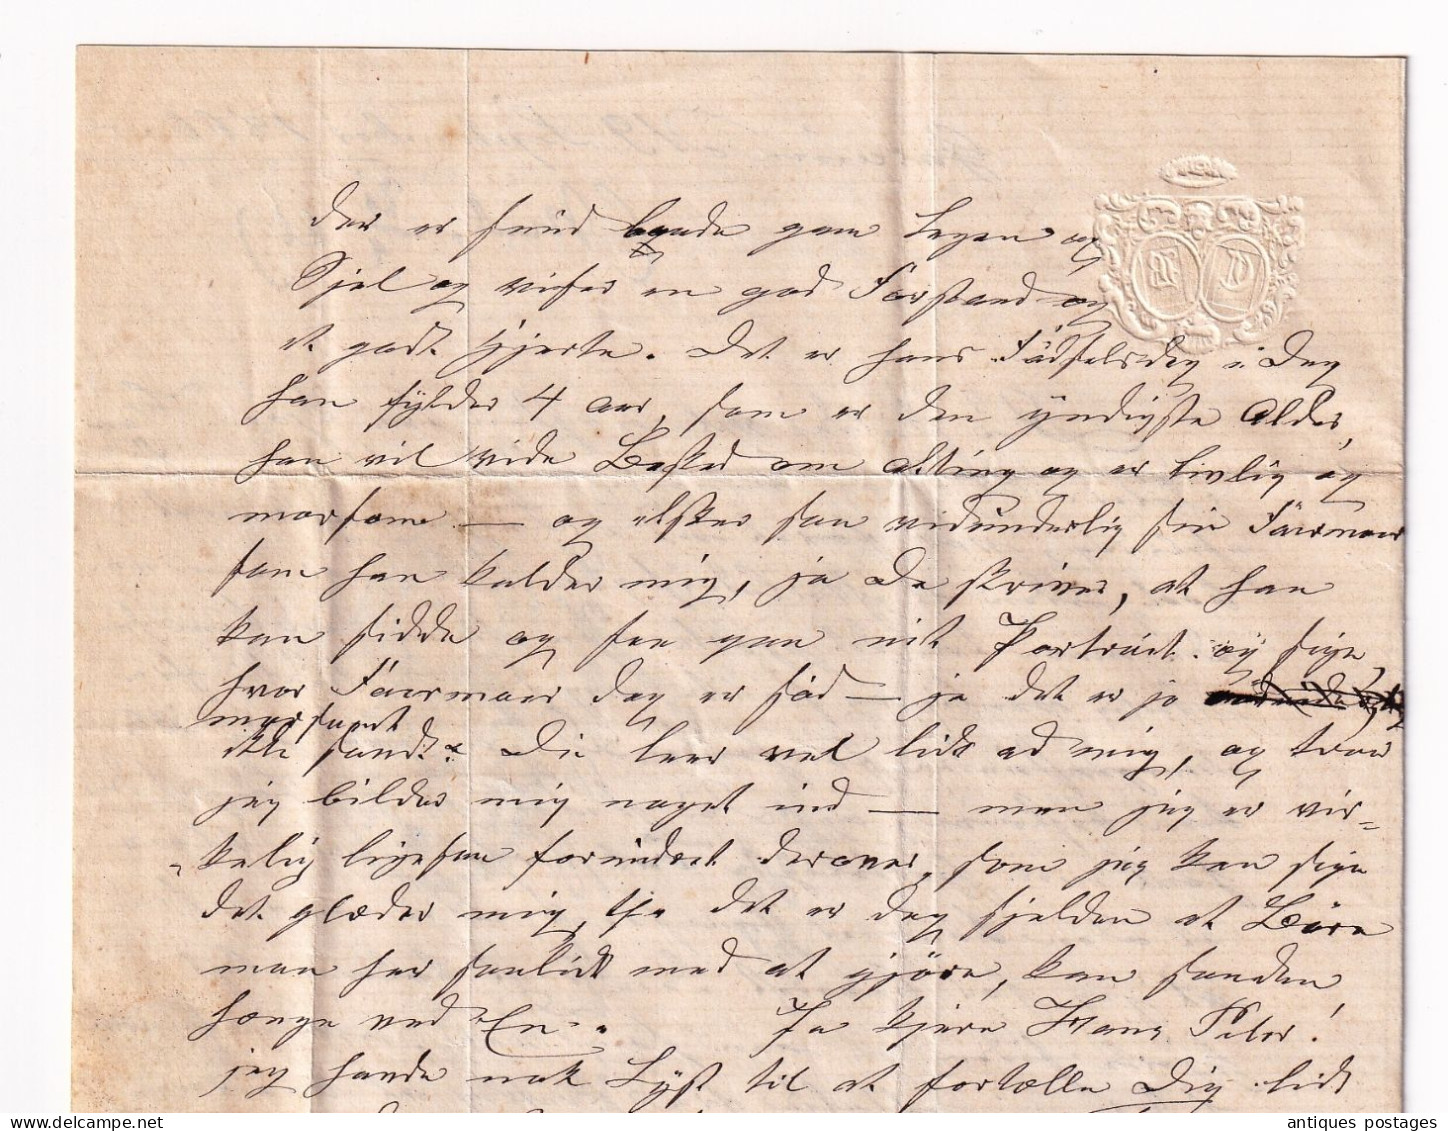 der er sund baade paa Legem og
Sjel og viser en god Forstand og
et godt Hjerte. Det er hans Födselsdag i Dag
han fylder 4 Aar, som er den yndigste Alder,
han vil vide Besked om Alting og er livlig og
morsom — og elsker saa vidunderlig sin Faermoer
som han kalder mig, ja De skriver, at han
kan sidde og see paa mit Portrait og sige,
hvor Faermoer dog er söd — ja det er jo
morsomt
ikke sandt? Du leer vel lidt ad mig, og troer
jeg bilder mig noget ind — men jeg er vir=
=kelig ligesaa forundret derover, som jeg kan sige
det glæder mig, thi det er dog sjelden at Börn
man har saalidt med at gjöre, kan saadan
hænge ved En. Ja kjere Hans Peter!
jeg havde nok Lyst til at fortælle Dig lidt
antiques postages